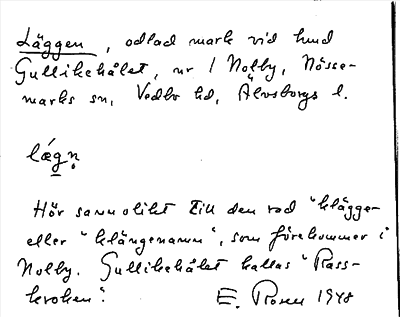 Läggen, odlad mark vid hmd
Gullikehålet, nr 1 Nolby, Nösse-
marks sn, Vedbo hd, Älvsborgs l.
lǽgn̥
Hör sannolikt till den rad "klägge-
eller "klängenamn", som förekommer i
Nolby. Gullikehålet kallas "Rass-
kroken".
E. Rosen 1948